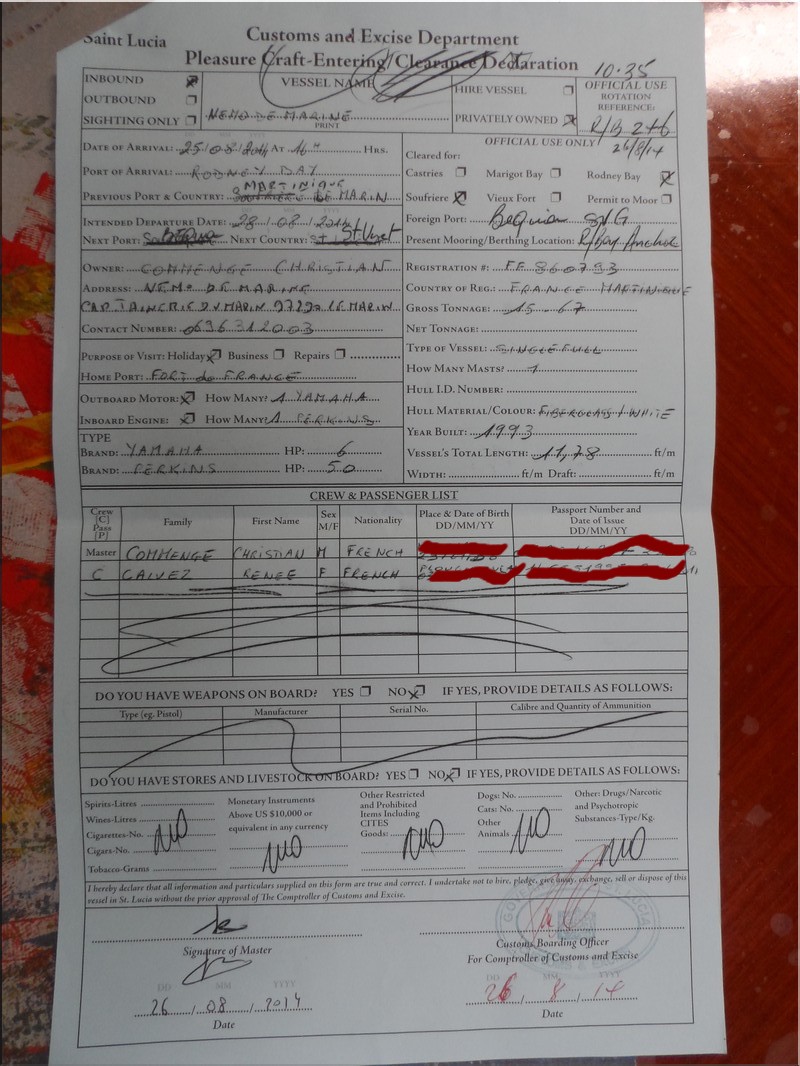 Saint Lucia
Customs and Excise Department
Pleasure Craft-Entering/Clearance Declaration
10.35
INBOUND
OUTBOUND
SIGHTING ONLY
VESSEL NAME
NEMO DE MARINE
PRINT
HIRE VESSEL
PRIVATELY OWNED
OFFICIAL USE
ROTATION
REFERENCE:
R/B 2+6
26/8/14
DATE OF ARRIVAL: 25/08/2014 AT 16H HRS.
PORT OF ARRIVAL: RODNEY BAY
MARTINIQUE
PREVIOUS PORT & COUNTRY: LE MARIN
INTENDED DEPARTURE DATE: 28/08/2014
NEXT PORT: Bequia NEXT COUNTRY: St Vincent
OFFICIAL USE ONLY
Cleared for:
Castries Marigot Bay Rodney Bay
Soufriere Vieux Fort Permit to Moor
Foreign Port: Bequia SVG
Present Mooring/Berthing Location: R/Bay Anchor
OWNER: COMMENGE CHRISTIAN
ADDRESS: NEMO DE MARINE
CAPTAINERIE DU MARIN 97290 LE MARIN
CONTACT NUMBER: 0696312003
PURPOSE OF VISIT: Holiday Business Repairs
HOME PORT: FORT de FRANCE
OUTBOARD MOTOR: HOW MANY? 1 YAMAHA
INBOARD ENGINE: HOW MANY? 1 PERKINS
TYPE
BRAND: YAMAHA HP: 6
BRAND: PERKINS HP: 50
REGISTRATION #: FF 860793
COUNTRY OF REG: FRANCE MARTINIQUE
GROSS TONNAGE: 15.67
NET TONNAGE:
TYPE OF VESSEL: SINGLE HULL
HOW MANY MASTS? 1
HULL I.D. NUMBER:
HULL MATERIAL/COLOUR: FIBERGLASS / WHITE
YEAR BUILT: 1993
VESSEL'S TOTAL LENGTH: 11,78 ft/m
WIDTH: ft/m Draft: ft/m
CREW & PASSENGER LIST
Crew [C] Pass [P] Family First Name Sex M/F Nationality Place & Date of Birth DD/MM/YY Passport Number and Date of Issue DD/MM/YY
Master COMMENGE CHRISTIAN M FRENCH
C CALVEZ RENEE F FRENCH
DO YOU HAVE WEAPONS ON BOARD? YES NO IF YES, PROVIDE DETAILS AS FOLLOWS:
Type (eg. Pistol) Manufacturer Serial No. Calibre and Quantity of Ammunition
DO YOU HAVE STORES AND LIVESTOCK ON BOARD? YES NO IF YES, PROVIDE DETAILS AS FOLLOWS:
Spirits-Litres
Wines-Litres
Cigarettes-No.
Cigars-No.
Tobacco-Grams
NO
Monetary Instruments
Above US $10,000 or
equivalent in any currency
NO
Other Restricted
and Prohibited
Items Including
CITES
Goods:
NO
Dogs: No.
Cats: No.
Other
Animals
NO
Other: Drugs/Narcotic
and Psychotropic
Substances-Type/Kg.
NO
I hereby declare that all information and particulars supplied on this form are true and correct. I undertake not to hire, pledge, give away, exchange, sell or dispose of this
vessel in St. Lucia without the prior approval of The Comptroller of Customs and Excise.
Signature of Master
Customs Boarding Officer
For Comptroller of Customs and Excise
DD MM YYYY
26 / 08 / 2014
Date
DD MM YYYY
26 / 8 / 14
Date